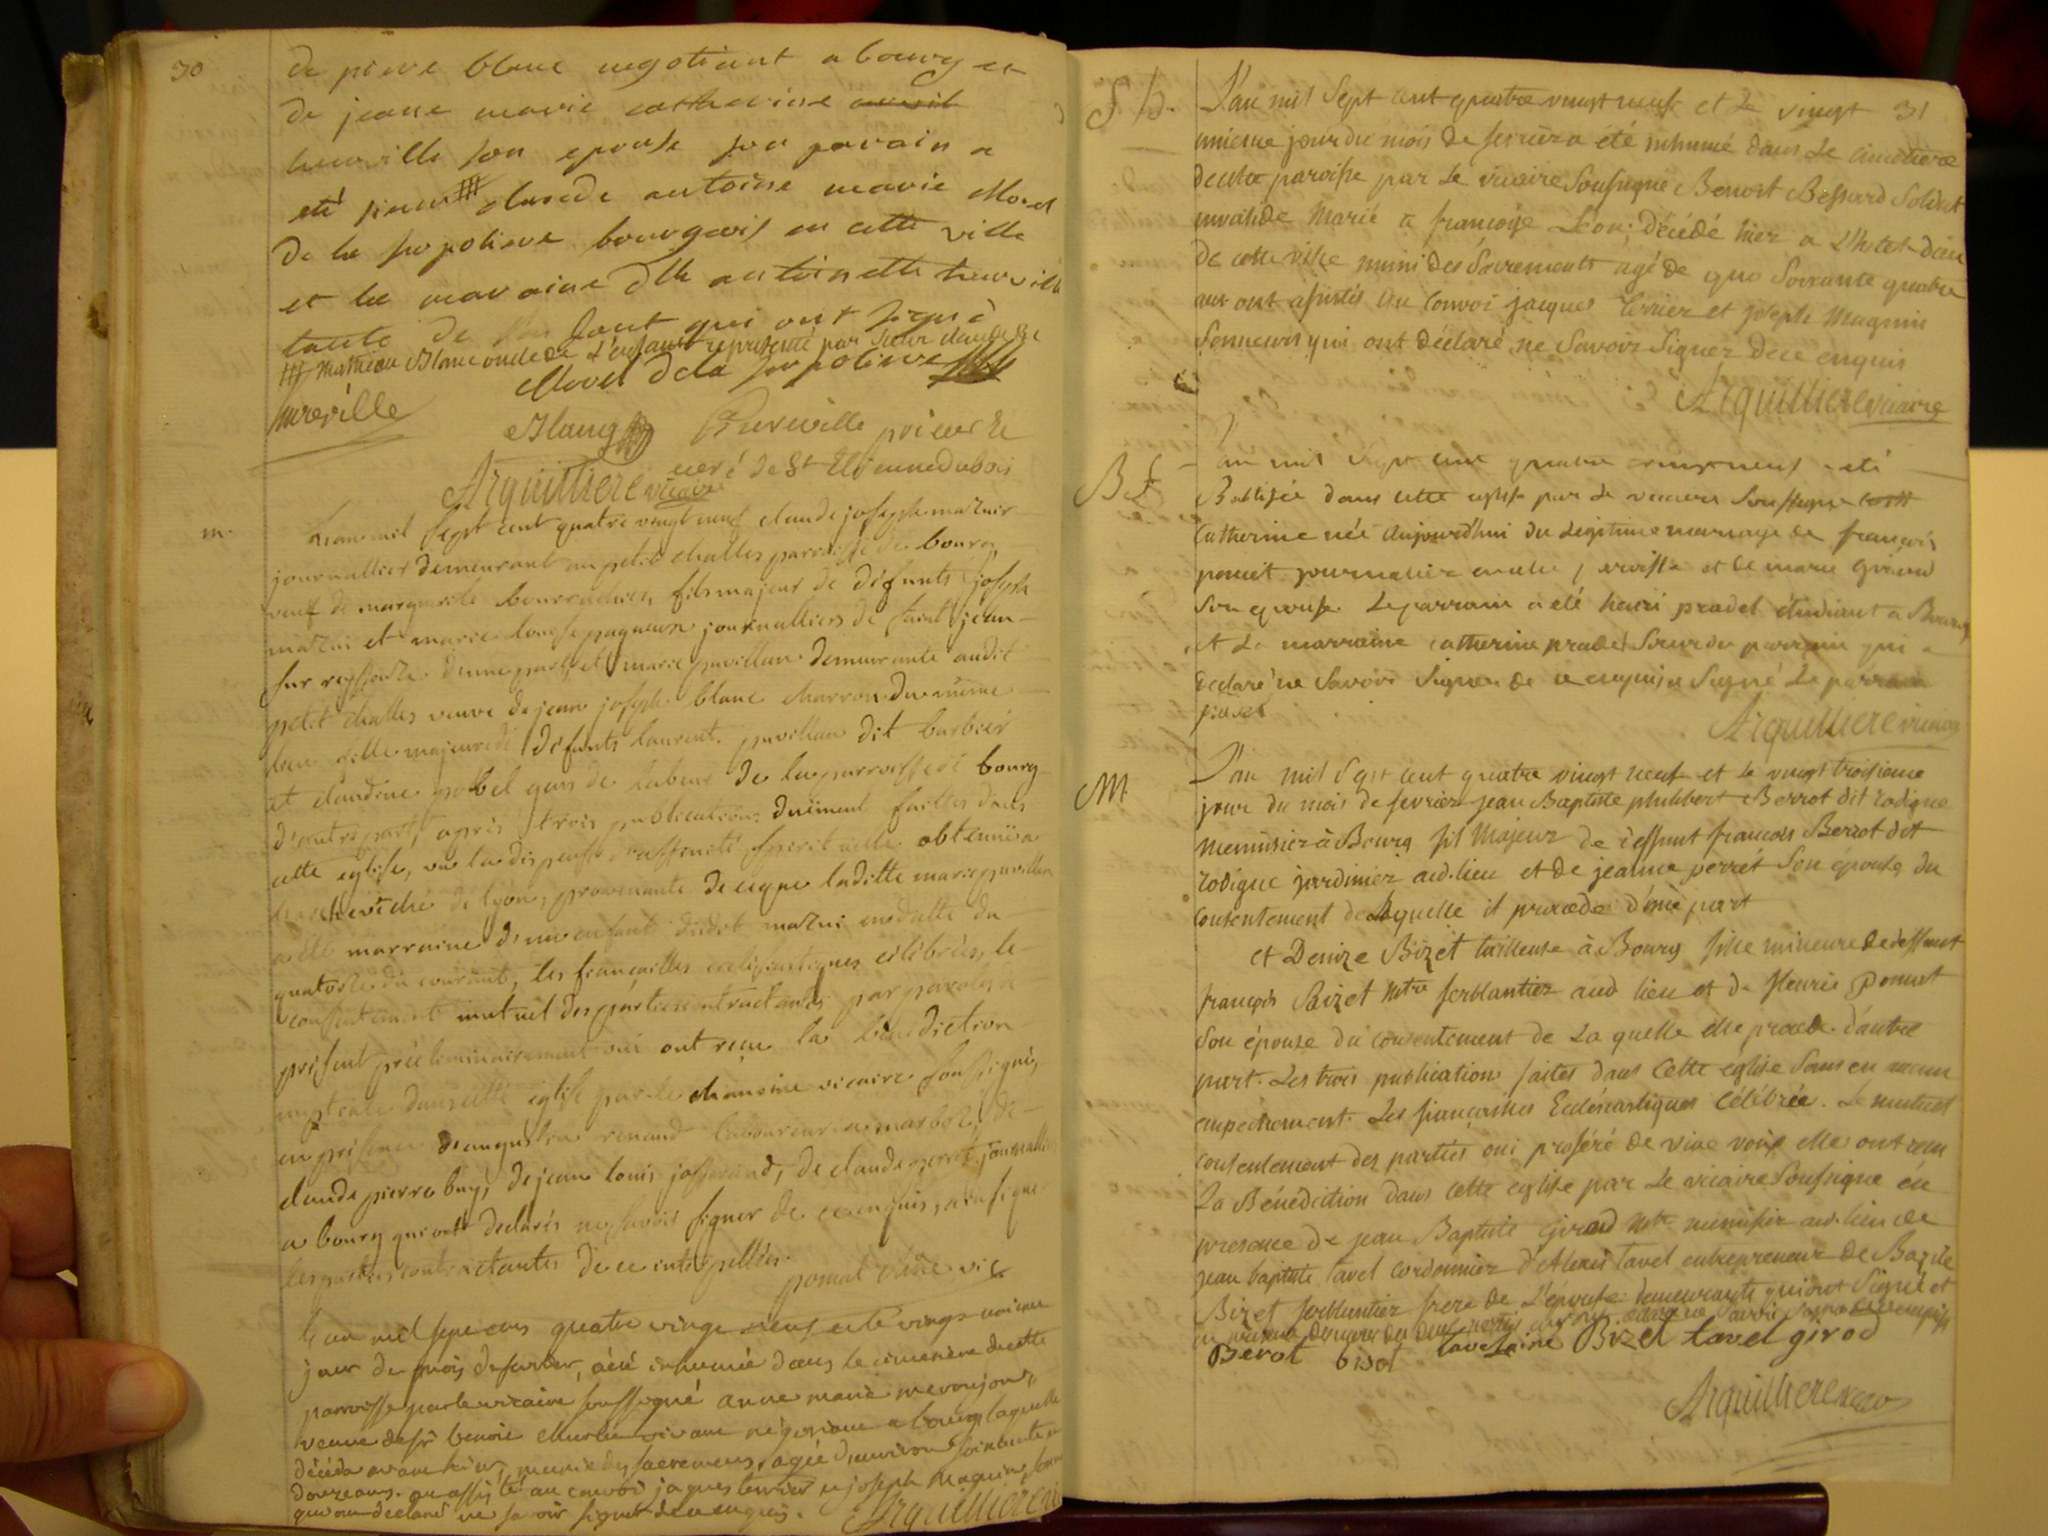 30
de pierre blanc negotiant a bourg et
de jeanne marie catherine
hureville son epouse son parain a
eté sieur ### claude antoine marie Morel
de la serpoliere bourgeois en cette ville
et la maraine dlle antoinette hureville
tante de l'enfant qui ont signé
### Mathieu Blanc oncle de L'enfant représenté par Sieur claude &c
Morel de la serpoliere
hureville
Blanc Hureville
curé de St Etienne du bois
Arquilliere vicaire
m.
L'an mil sept cent quatre vingt neuf claude joseph mazuir
journallier demeurant au petit challes parroisse de bourg
veuf de marguerite bourcachier, fils majeur de défunts joseph
mazui et marie louise paqueux journalliers de saint jean
sur reyssouze d'une part, et marie pavillon demeurante audit
petit challes veuve de jean joseph blanc charron du même
lieu fille majeure de défunts laurent pavillon dit barbier
et claudine gobel gens de labeur de la parroisse de bourg
d'autre part, après trois publications duëment faittes dans
cette eglise, vu la dispense d'affinité spirituelle obtenüe a
l'archevêché de lyon, provenante de ce que laditte marie pavillon
a été marraine d'un enfant dudit mazui en datte du
quatorze du courant, les fiançailles eclésiastiques célébrées, le
consentement mutuel des parties contractantes par paroles de
présent préliminairement oüi ont reçu la bénédiction
nuptiale dans cette eglise par le chanoine vicaire soussigné,
en présence d'augustin renaud laboureur a marboz, de
claude pierre buy, de jean louis josserand, de claude perret journalliers
a bourg qui ont declarés ne savoir signer de ce enquis, ainsi que
les parties contractantes de ce interpellées.
pomat chne vic
L'an mil sept cens quatre vingt neuf et le vingt unieme
jour du mois de fevrier, a été inhumée dans le cimetière de cette
parroisse par le vicaire soussigné anne marie
veuve de Sr benoit vivant négotiant a bourg laquelle
décéda avant hier, munie des sacremens, agée d'environ soixante et
douze ans. ont assisté au convoi jaques terrier et joseph maquin
qui ont déclaré ne savoir signer de ce enquis. Arquilliere vi
31
S. h.
L'an mil Sept cent quatre vingt neuf et le vingt
unieme jour du mois de fevrier a été inhumé dans Le cimetiere
de cette paroisse par Le vicaire Soussigné Benoit Bessard Soldat
invalide Marié a françoise Léon; décédé hier a L'hotel-dieu
de cette ville muni des Sacrements agé de que Soixante quatre
ans ont assistés au Convoi jacques Terrier et joseph Maquin
Sonneurs qui ont déclaré ne Savoir Signer de ce enquis
Arquilliere vicaire
B f
L'an mil sept cent quatre vingt neuf a été
Baptisée dans cette eglise par Le vicaire Soussigné
Catherine née aujourd'hui du Légitime mariage de françois
journalier en cette paroisse et de marie
Son epouse. Le parrain a eté henri pradel étudiant a Bourg
et La marraine catherine pradel Soeur du parrain qui a
declaré ne Savoir Signer de ce enquis a Signé Le parrain
pradel
Arquilliere vicaire
M
L'an mil Sept cent quatre vingt neuf et Le vingt troisieme
jour du mois de fevrier jean Baptiste philibert Berrot dit rodigue
menuisier à Bourg fil Majeur de deffunt francois Berrot dit
rodigue jardinier aud. lieu et de jeanne perret Son épouse du
consentement de Laquelle il procede d'une part
et Denize Bizet tailleuse à Bourg fille mineure de deffunt
françois Bizet Mtre ferblantier aud lieu et de fleurie ponset
Son épouse du consentement de La quelle elle procede d'autre
part. Les trois publications faites dans Cette église Sans en aucun
empechement. Les fiançailles Eclésiastiques Célébrée. Le mutuel
consentement des parties oui proféré de vive voix elles ont recu
La Bénédiction dans cette eglise par Le vicaire Soussigné én
presence de jean Baptiste Girod Mtre menuisier aud. lieu de
jean baptiste tavel cordonnier d'Alexis tavel entrepreneur de Bazile
Bizet ferblantier frere de L'épouse demeurants qui ont Signé et
Berot bisot tavel ainé Bizet tavel girod
Arquilliere vicaire